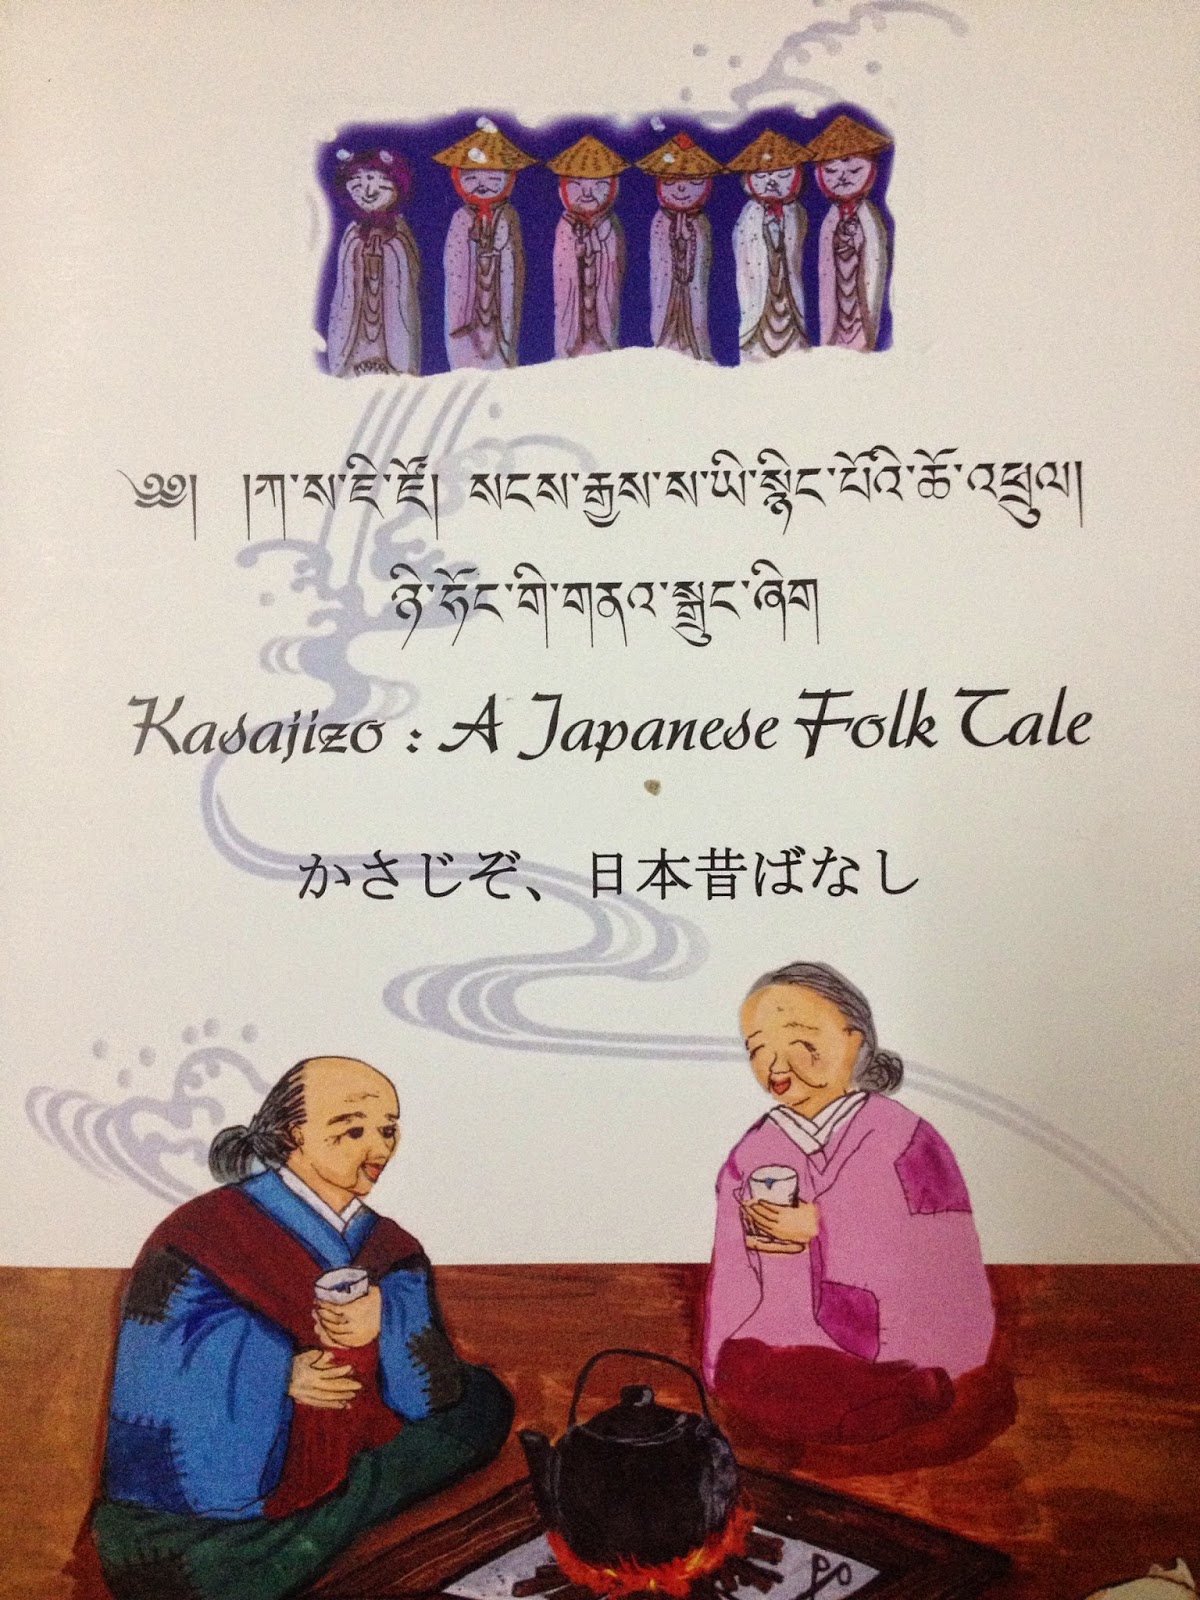 ༄༅། །ཀ་ས་ཇི་ཛོ། སངས་རྒྱས་ས་ཡི་སྙིང་པོའི་ཆོ་འཕྲུལ།
ཉི་ཧོང་གི་གནའ་སྒྲུང་ཞིག
Kasajizo : A Japanese Folk Tale
かさじぞ、日本昔ばなし